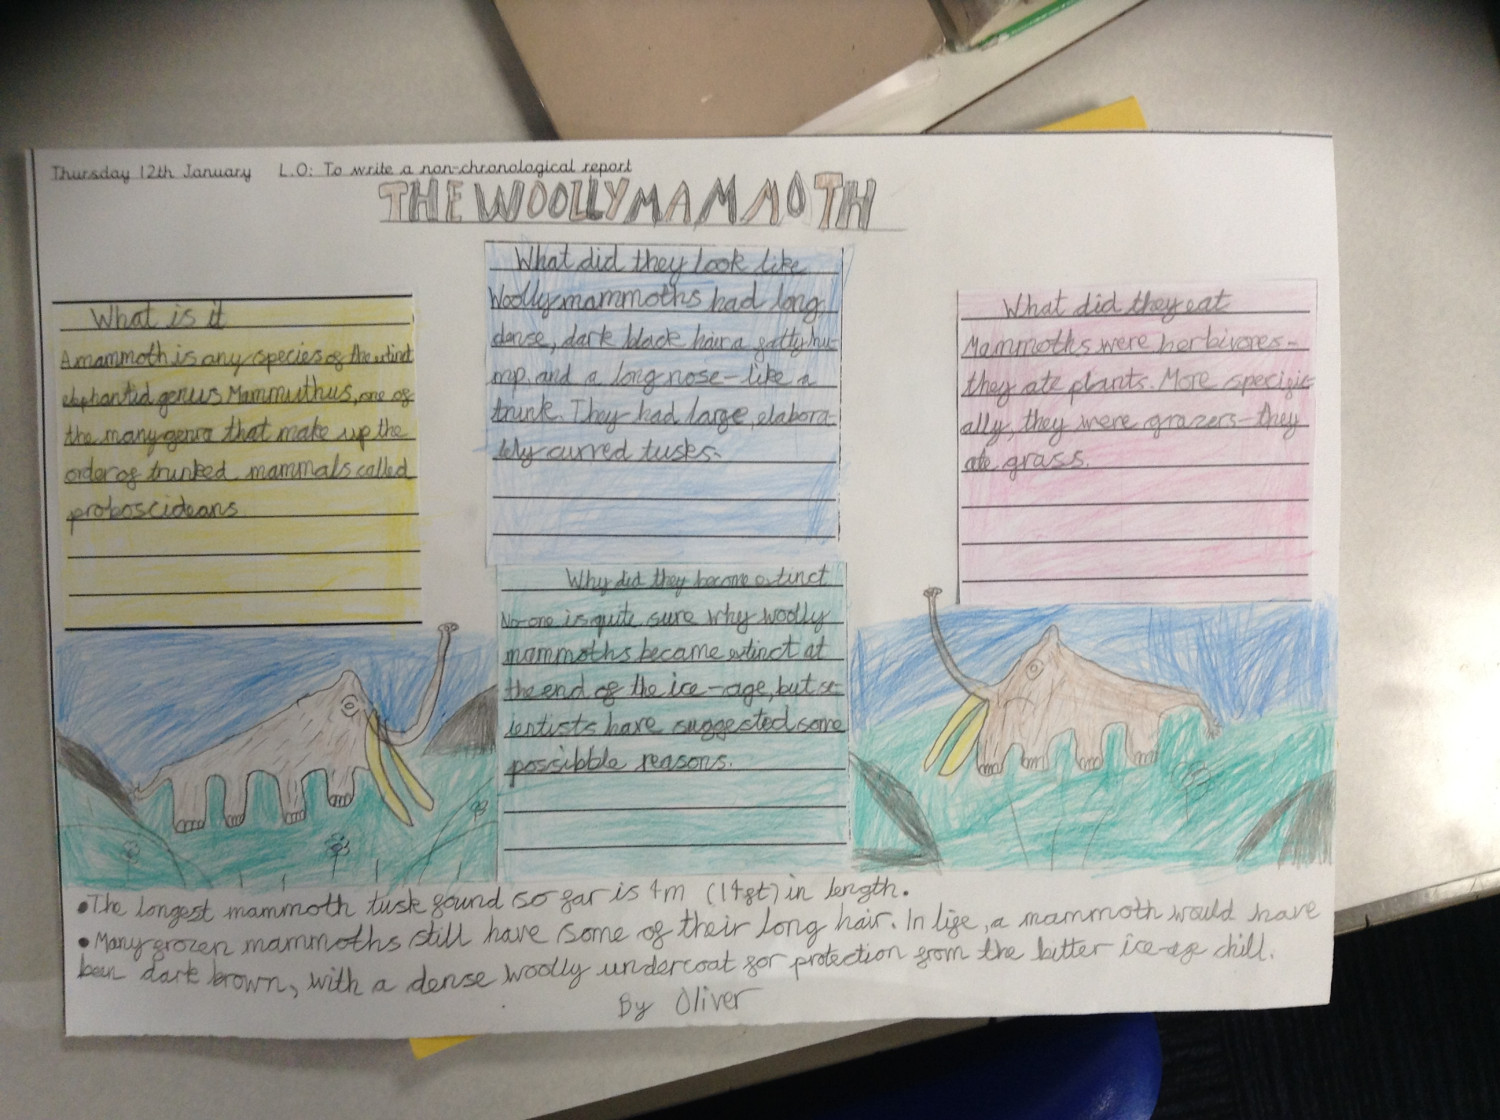 Thursday 12th January L.O: To write a non-chronological report
THE WOOLLY MAMMOTH
What is it
A mammoth is any species of the extinct
elephantid genus Mammuthus, one of
the many genra that make up the
order of trunked mammals called
proboscideans.
What did they look like
Woolly mammoths had long,
dense, dark black hair a fatty hu-
mp, and a long nose-like a
trunk. They had large, elabora-
tely curved tusks.
Why did they become extinct
No-one is quite sure why woolly
mammoths became extinct at
the end of the ice-age, but sc-
ientists have suggested some
possibble reasons.
What did they eat
Mammoths were herbivores-
they ate plants. More specific-
ally, they were grazers-they
ate grass.
•The longest mammoth tusk found so far is 4m (14ft) in length.
•Many frozen mammoths still have some of their long hair. In life, a mammoth would have
been dark brown, with a dense woolly undercoat for protection from the bitter ice-age chill.
By Oliver